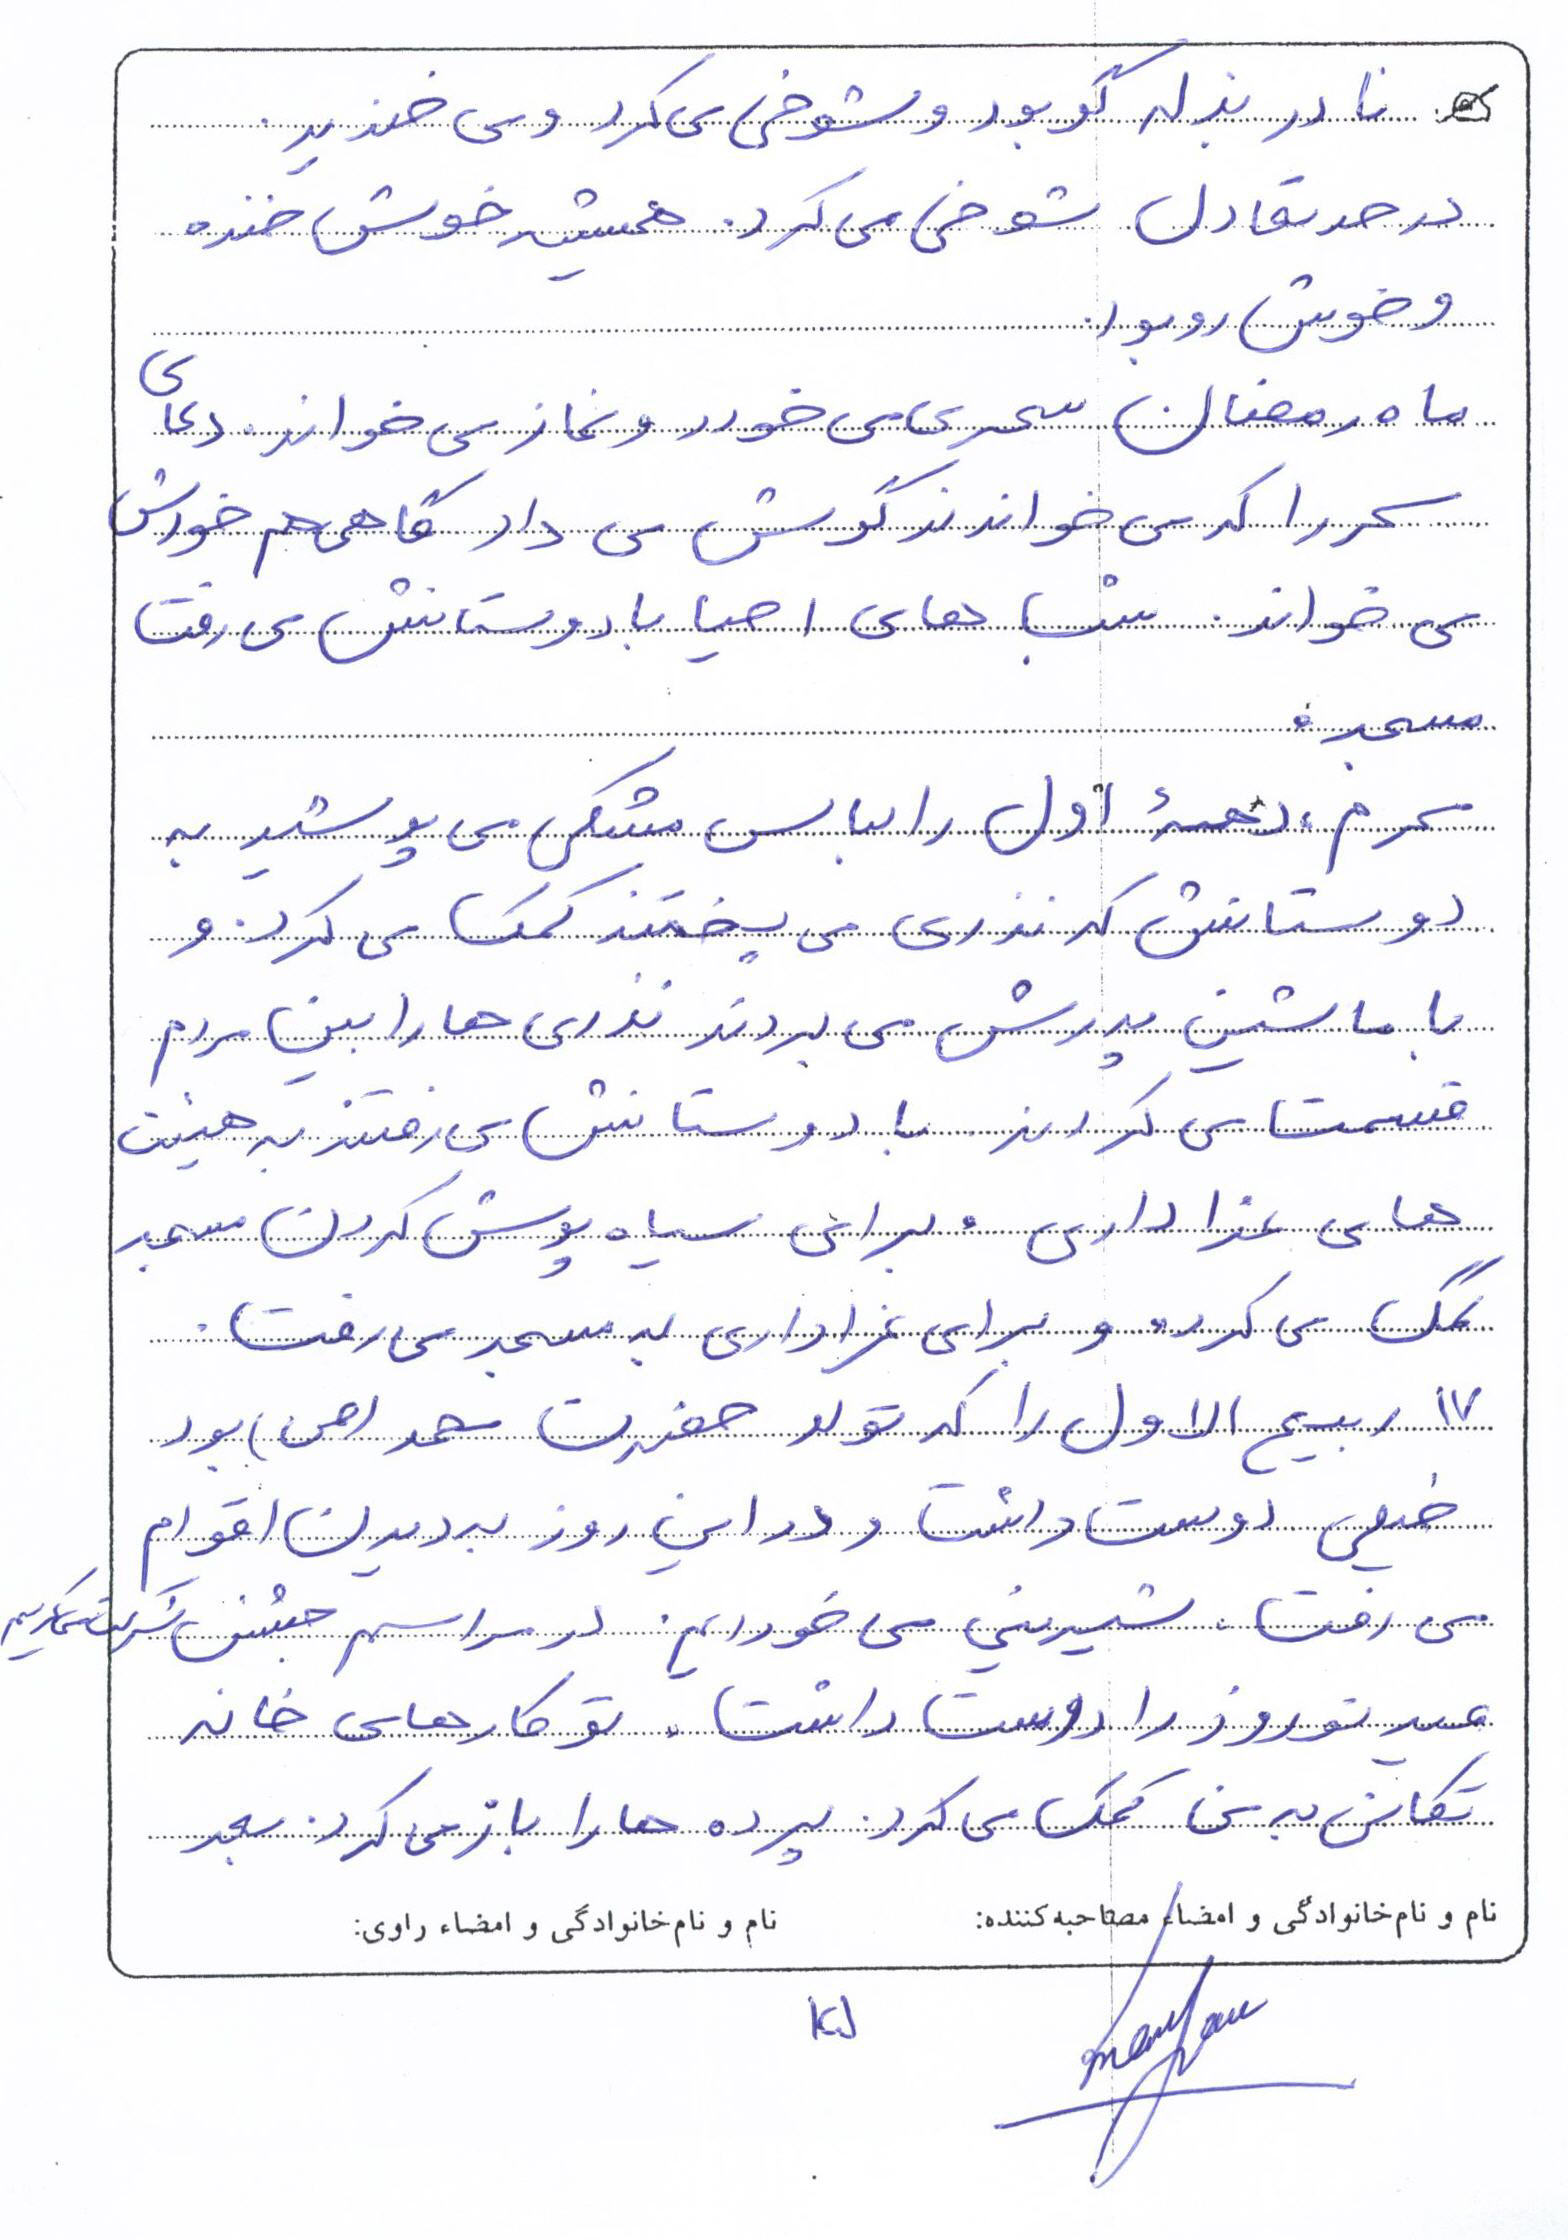 نادر بذله گو بود و شوخی می کرد و می خندید.
در حد تعادل شوخی می کرد. همیشه خوش خنده
و خوش رو بود.
ماه رمضان سحری می خورد و نماز می خواند. دعای
سحر را که می خواندند گوش می داد گاهی هم خودش
می خواند. شب های احیا با دوستانش می رفت
مسجد.
محرم، دههٔ اول را لباس مشکی می پوشید به
دوستانش که نذری می پختند کمک می کرد. و
با ماشین پدرش می بردند نذری ها را بین مردم
قسمت می کردند. با دوستانش می رفتند به هیئت
های عزاداری. برای سیاه پوش کردن مسجد
کمک می کرد. و برای عزاداری به مسجد می رفت.
۱۷ ربیع الاول را که تولد حضرت محمد (ص) بود
خیلی دوست داشت و در این روز به دیدن اقوام
می رفت. شیرینی می خوردیم. در مراسم جشن شرکت می کردیم
عید نوروز را دوست داشت. تو کارهای خانه
تکانی به من کمک می کرد. پرده ها را باز می کرد. بعد
نام و نام خانوادگی و امضاء مصاحبه کننده:
نام و نام خانوادگی و امضاء راوی: